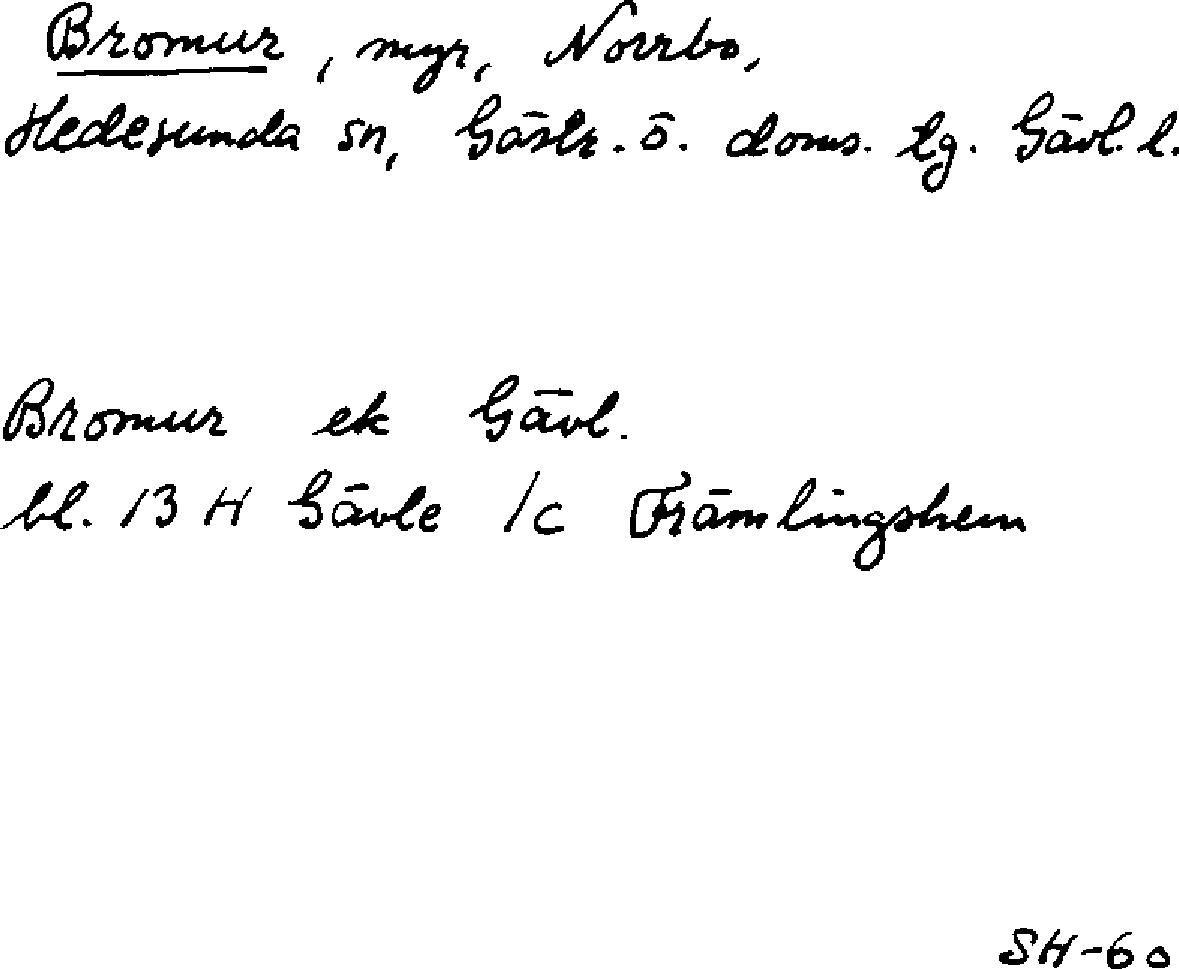 Bromur, myr, Norrbo,
Hedesunda sn, Gästr. ö. doms. tg. Gävl. l.
Bromur ek Gävl.
bl. 13 H Gävle 1c Främlingshem
SH-60